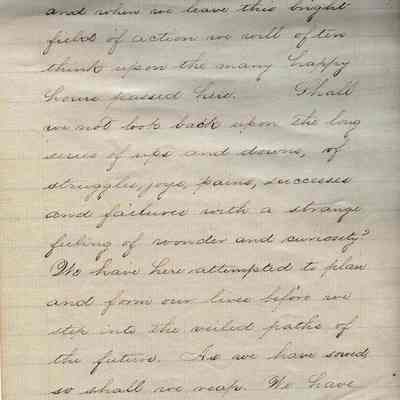 and when we leave this bright
field of action we will often
think upon the many happy
hours passed here. Shall
we not look back upon the long
series of ups and downs, of
struggles, joys, pains, successes
and failures with a strange
feeling of wonder and curiosity?
We have here attempted to plan
and form our lives before we
step into the veiled paths of
the future. As we have sowed
so shall we reap. We have